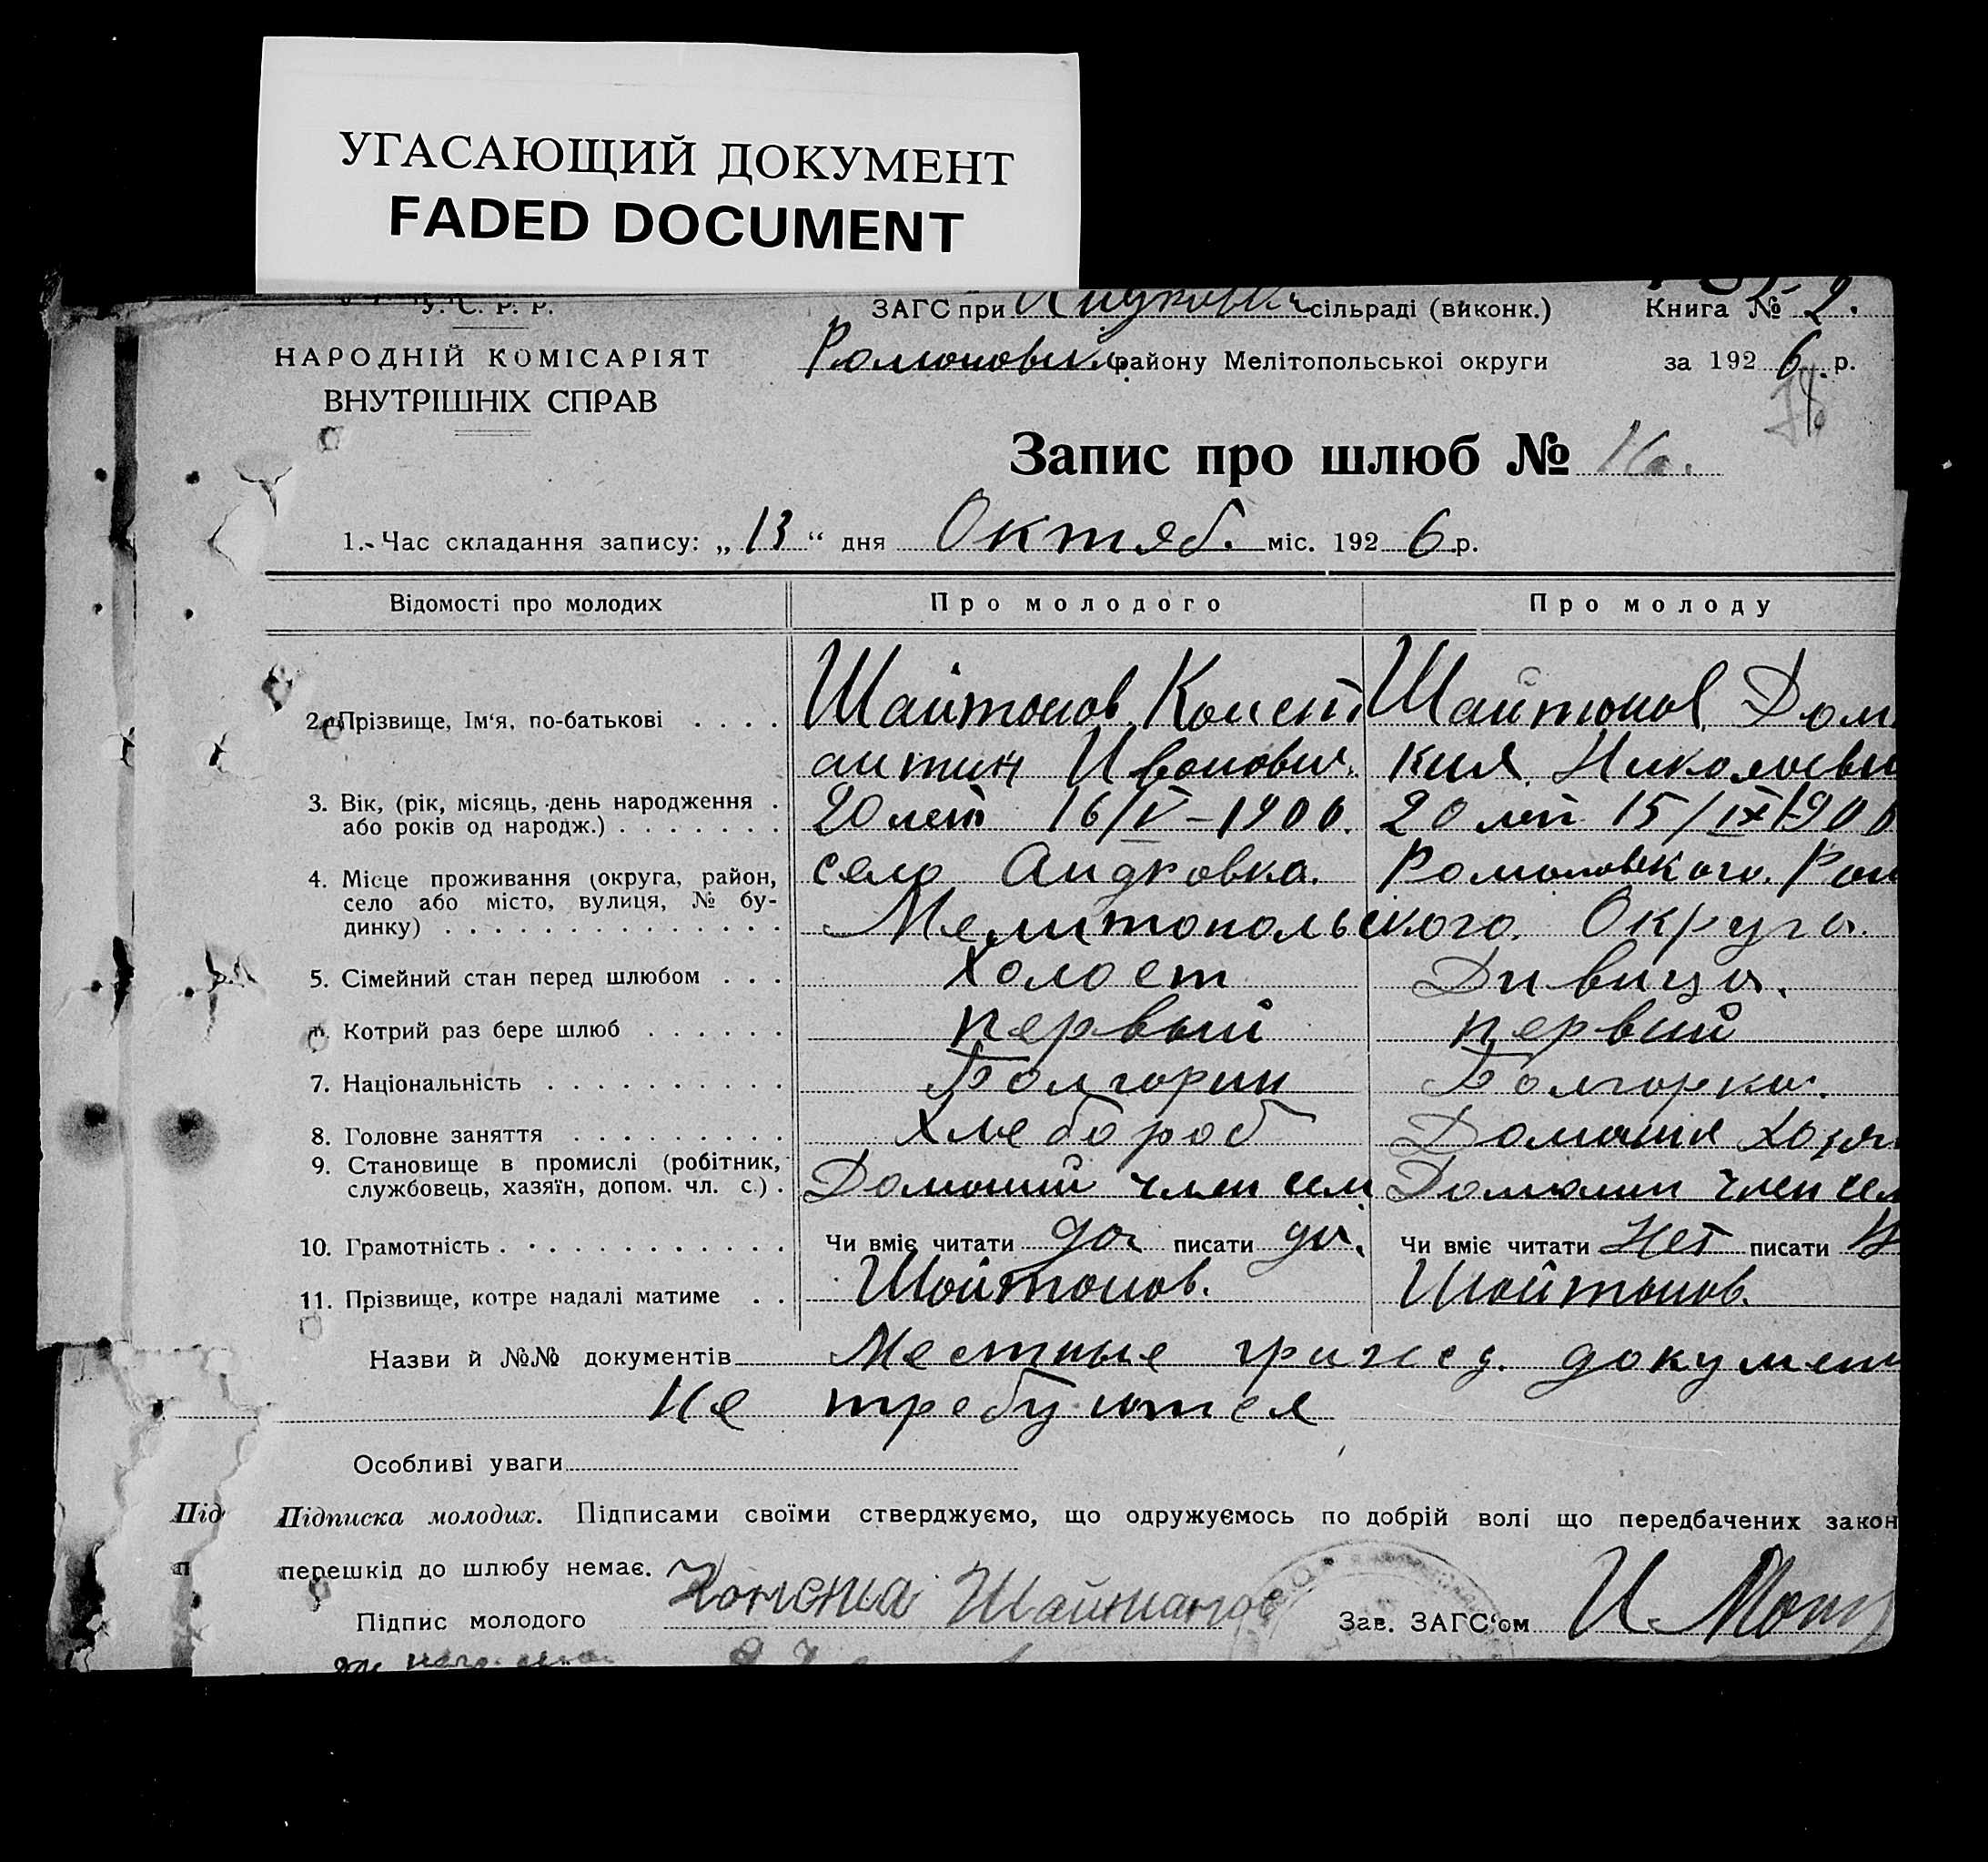 УГАСАЮЩИЙ ДОКУМЕНТ
FADED DOCUMENT
У. С. Р. Р.
ЗАГС при сільраді (виконк.)
Книга № 2.
НАРОДНІЙ КОМІСАРІЯТ
Романовск. району Мелітопольської округи
за 1926 р.
ВНУТРІШНІХ СПРАВ
78
Запис про шлюб № 16.
1. Час складання запису: „13“ дня Октяб. міс. 1926 р.
Відомості про молодих
Про молодого
Про молоду
2. Прізвище, Ім‘я, по-батькові . . . . Шайтанов Конст Шайтанов Дом
антин Иванович. кия Николаевн
3. Вік, (рік, місяць, день народження . 20 лет 16/IV – 1906. 20 лет 15/IX 1906
або років од народж.) . . . . . . .
4. Місце проживання (округа, район, село Андровка. Романовского Рай
село або місто, вулиця, № бу-
динку) . . . . . . . . . . . . . . Мелитопольского Округа.
5. Сімейний стан перед шлюбом . . . Холост Дивица.
Котрий раз бере шлюб . . . . . . первый первый
7. Національність . . . . . . . . . . Болгарин Болгарка.
8. Головне заняття . . . . . . . . . Хлебороб Домашня хозяй
9. Становище в промислі (робітник, Домаший член сем Домашни член сем
службовець, хазяїн, допом. чл. с.) .
10. Грамотність . . . . . . . . . . . . Чи вміє читати да писати да. Чи вміє читати Нет писати Н
11. Прізвище, котре надалі матиме . . Шайтанов. Шайтанов.
Назви й №№ документів Местные гражд. докумен
не требуются
Особливі уваги
Під Підписка молодих. Підписами своїми стверджуємо, що одружуємось по добрій волі що передбачених закон
п перешкід до шлюбу немає.
Підпис молодого Шайтанов Зав. ЗАГС‘ом И.